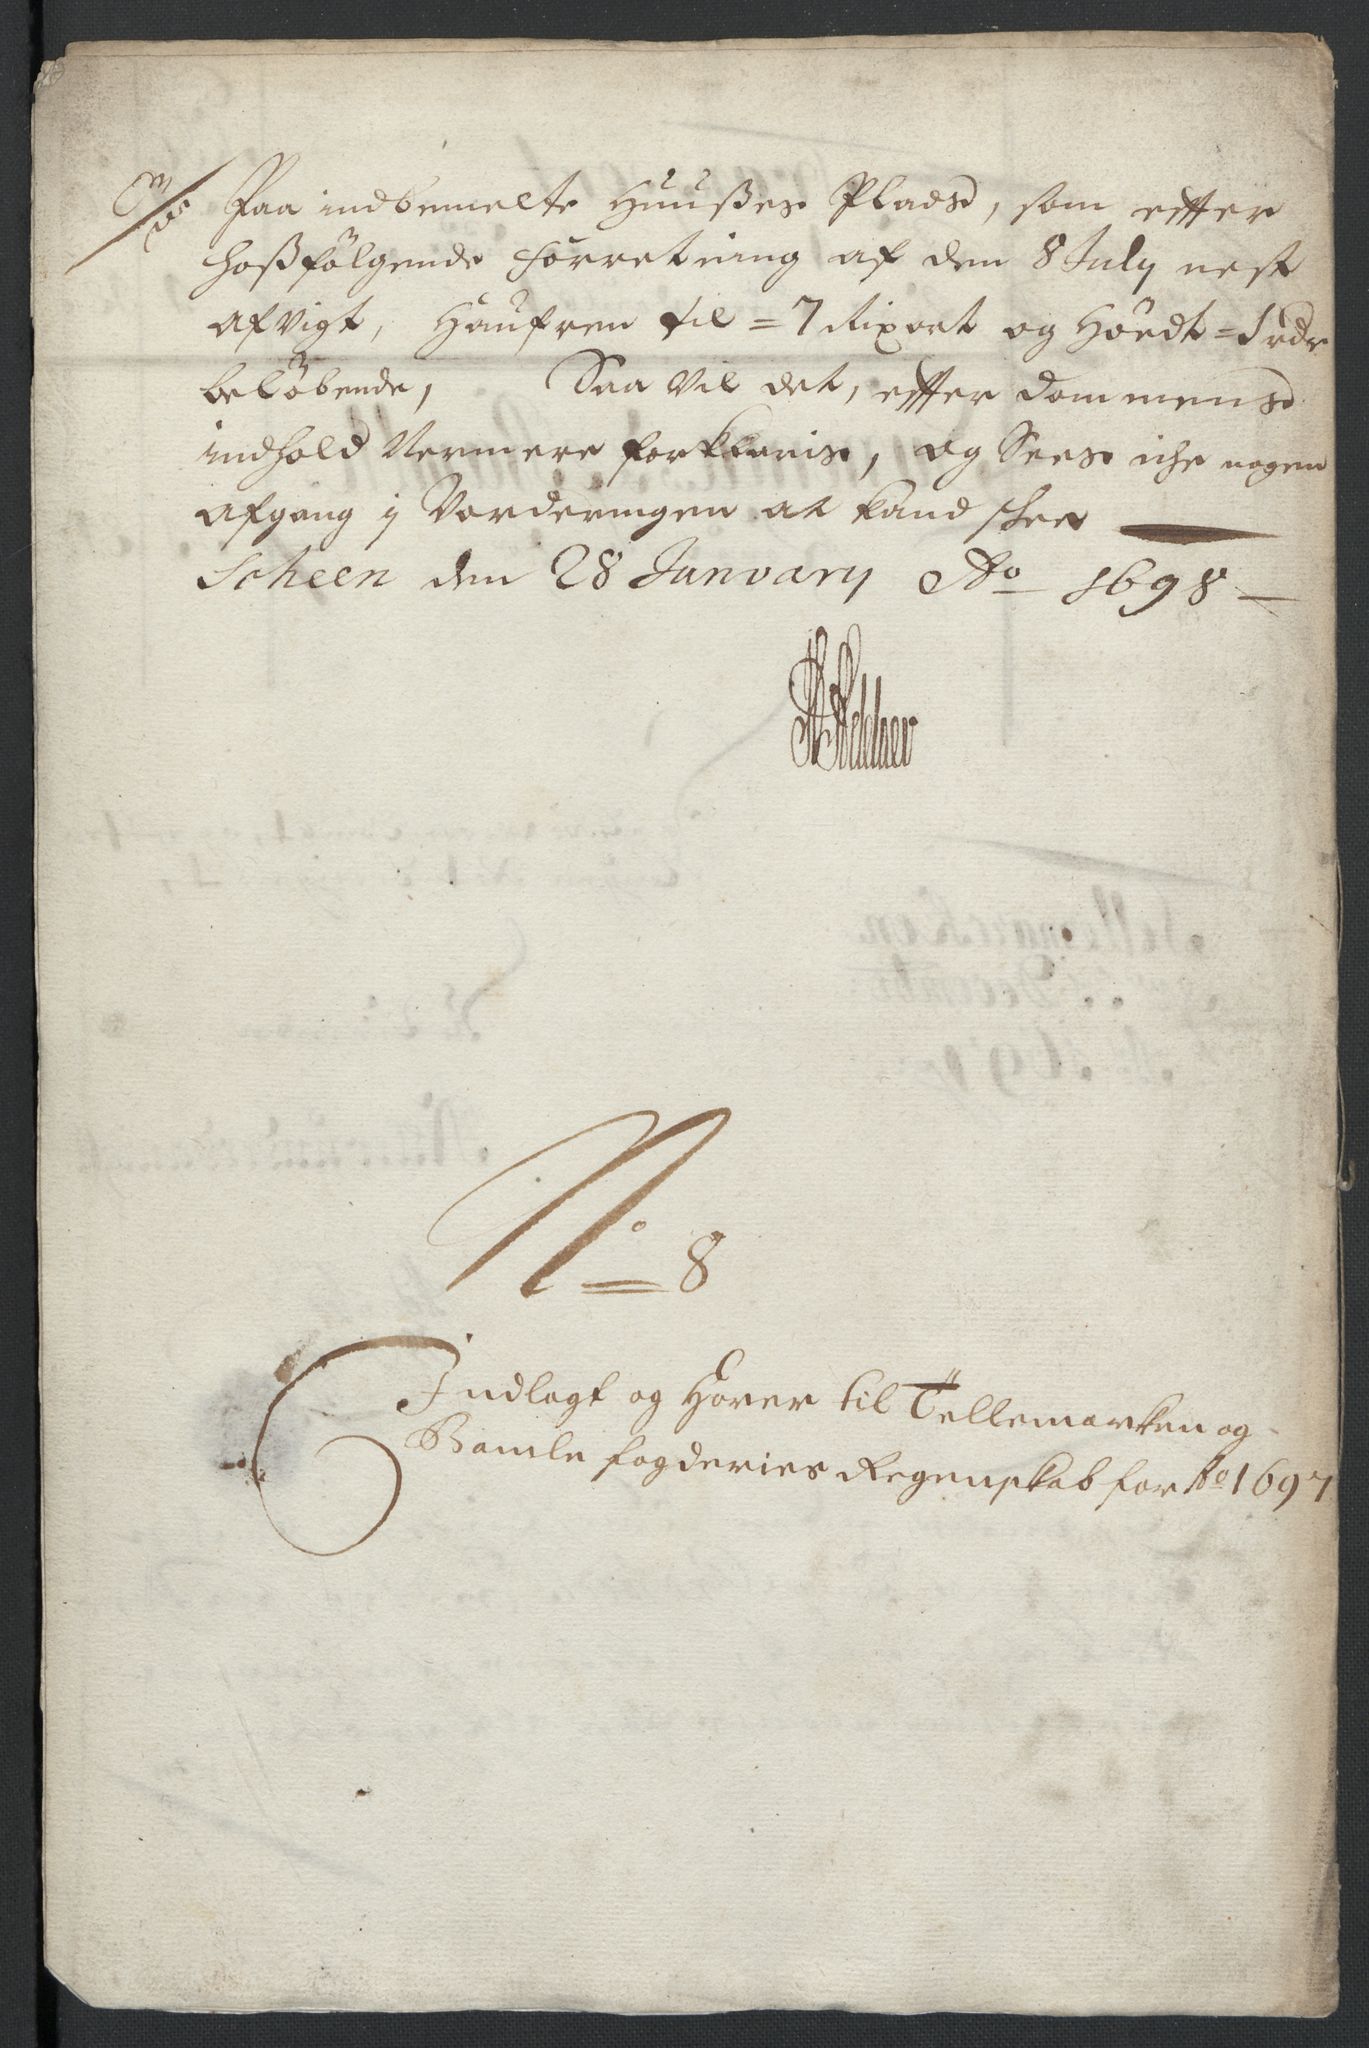 Paa indbemelte Huußes Pladß, som effter
hoßfölgende forretning af den 8 July nest
afvigt, til = 7 Rixort og =
belöbende, Saa vil det, effter Dommens
indhold Nermere forklaris, og Sees iche nogen
afgang i Vorderingen at kand skee
Scheen den 28 January Ao 1698
No 8
Indlagt og Hörer til Tellemarken og
Bamle fogderies Regenskab for Ao 1697